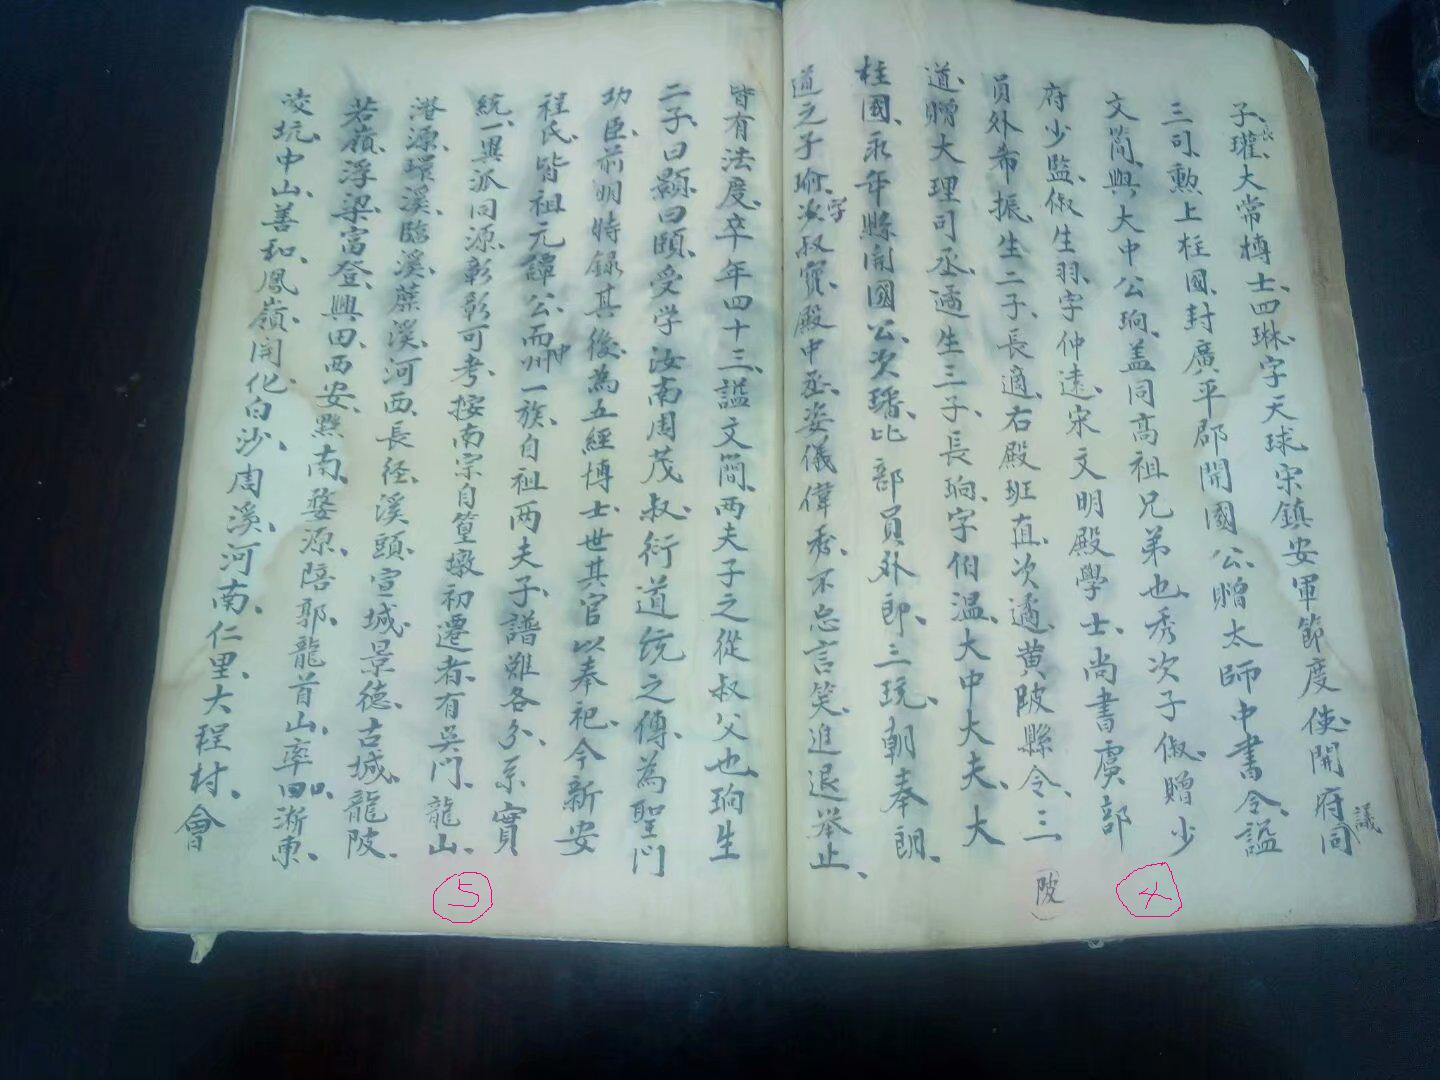 子長瓘、大常博士、四琳、字天球、宋鎮安軍節度使、開府同議
三司、勲上柱國、封廣平郡開國公、贈太師中書令、諡
文簡、與大中公珦、盖同高祖兄弟也、秀次子俶、贈少
府少監、俶生羽、字仲遠、宋文明殿學士、尚書虞部
員外希振、生二子、長適、右殿班直、次遹、黄陂縣令、三
(陂)
道、贈大理司丞、遹生三子、長珦、字伯溫、大中大夫、大
柱國、永年縣開國公、次璠、比部員外郎、三玩、朝奉朗、
道之子瑜、字次叔寳、殿中丞、姿儀偉秀、不忘言笑、進退举止、
皆有法度、卒年四十三、諡文簡、两夫子之從叔父也、珦生
二子、曰顥、曰頤、受学汝南周茂叔、衍道统之傳、為聖门
功臣、前明時録其後、為五經博士、世其官以奉祀、今新安
程氏、皆祖元譚公、而冲州一族、自祖两夫子、譜雖各分、系實
統一、異派同源、彰彰可考、按南宗自篁墩初遷者、有吴门、龍山、
港源、環溪、臨溪、蔗溪、河西、長径、溪頭、宣城、景德、古城、龍陂、
若嶺、浮梁、富登、興田、西安、黟南、婺源、陪郭、龍首山、率口、漸東、
凌坑、中山、善和、鳳嶺、開化、白沙、周溪、河南、仁里、大程村、會
4
5